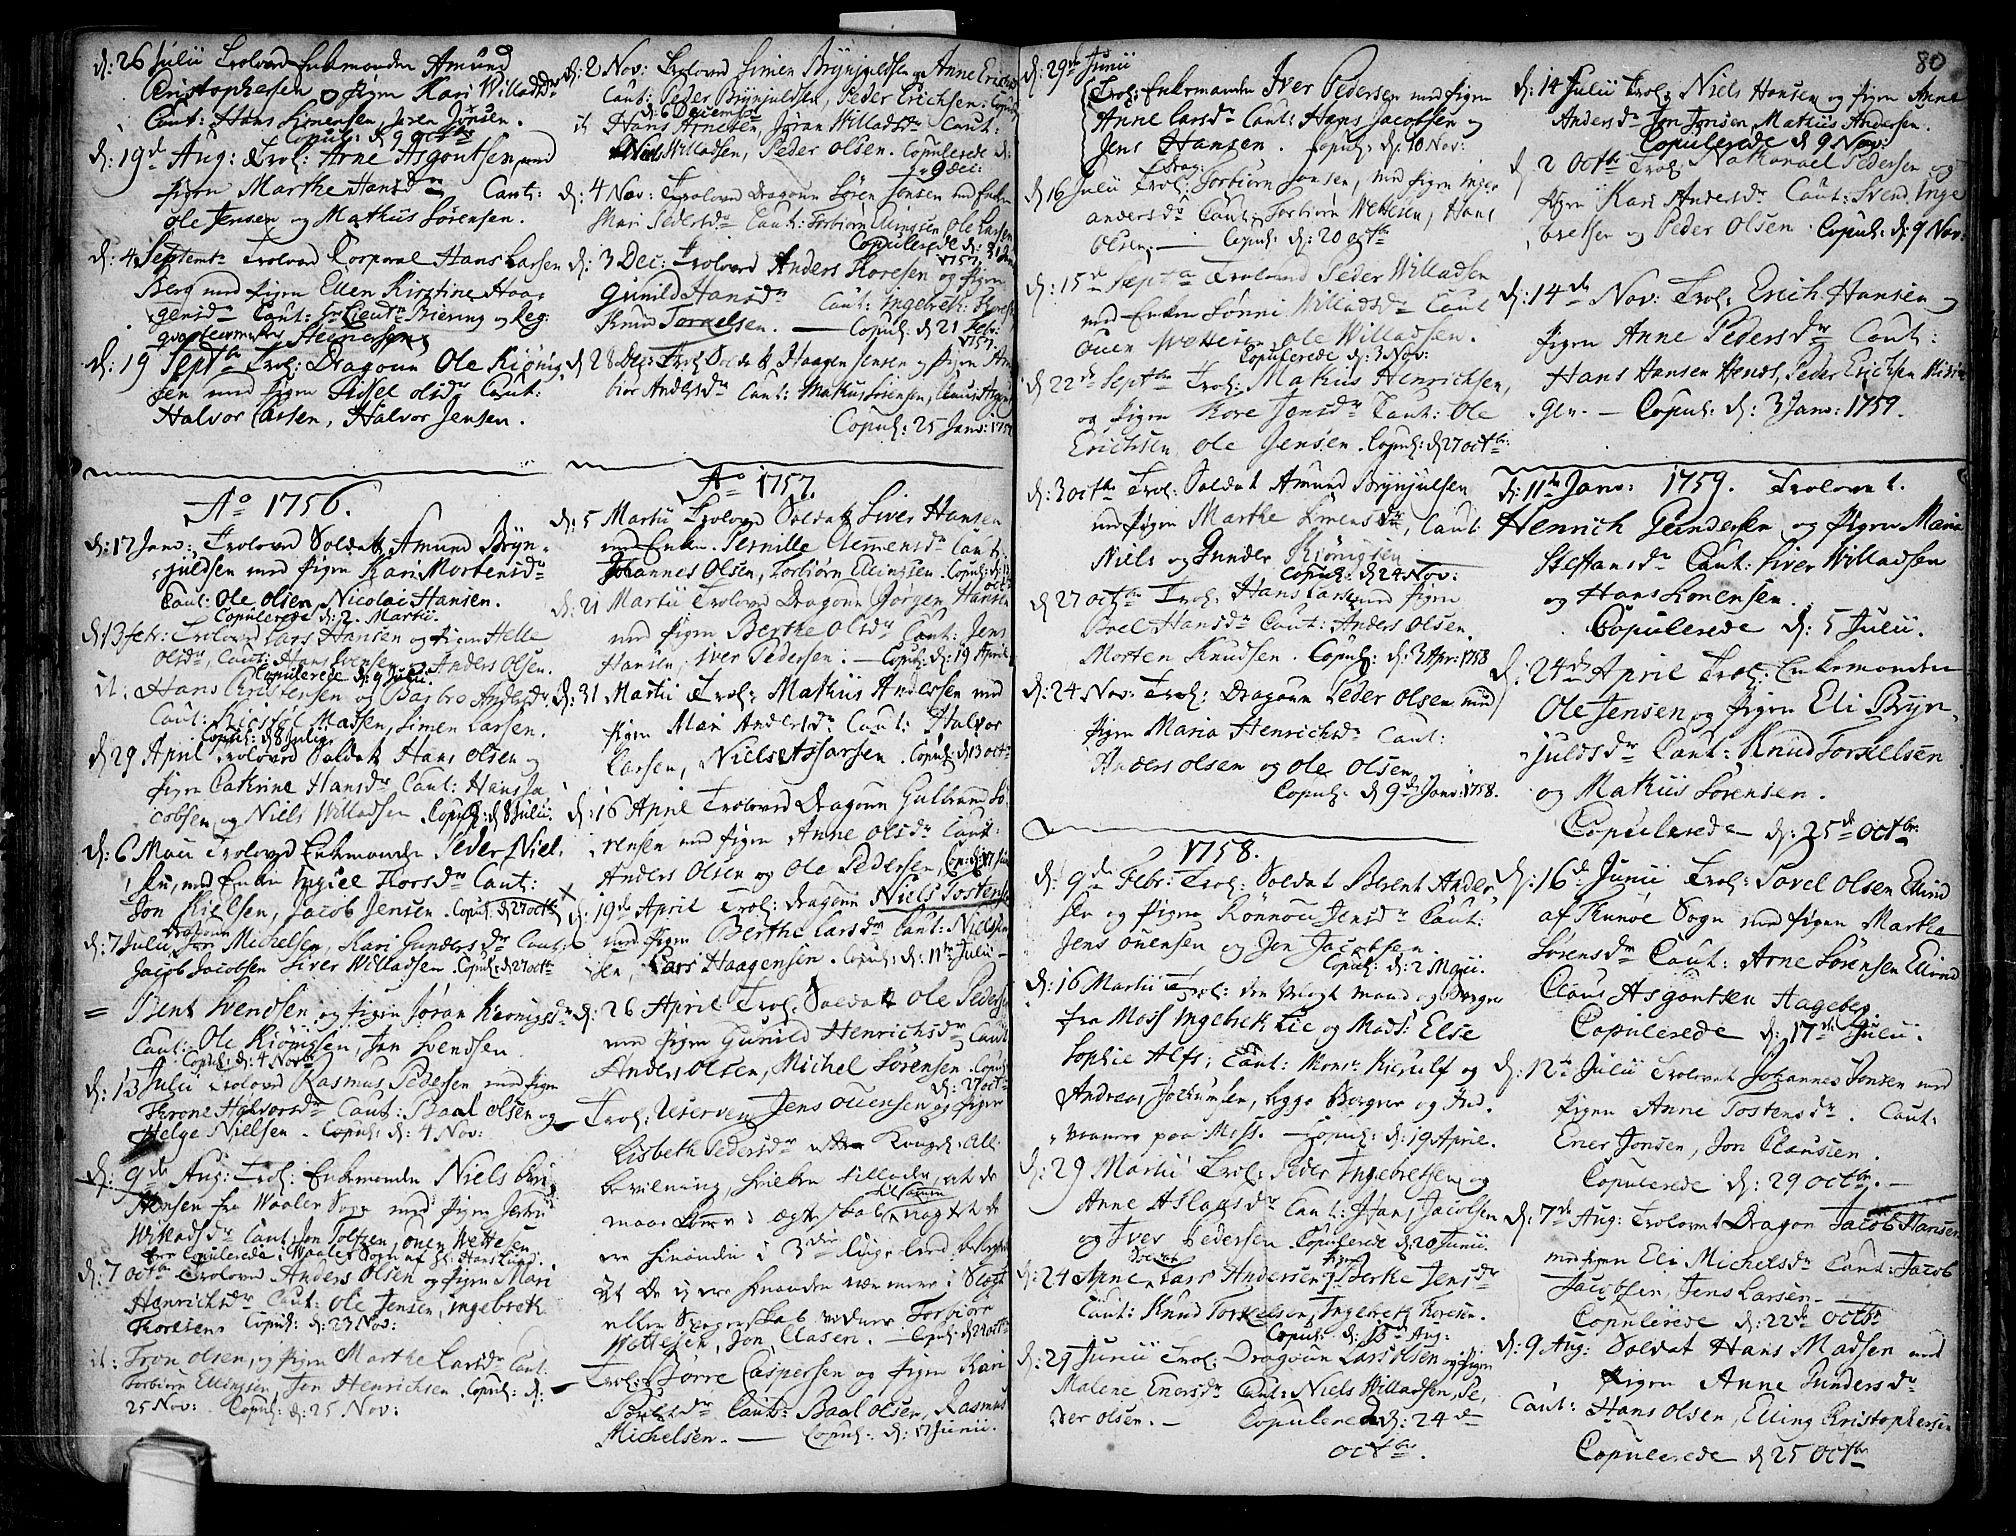 d: 26 Julii Trolovd Enkemanden Amund
Christophersen og Pigen Kari Willadsdr
Caut: Hans Simensen, Søren Jonsen.
Copul: d 9 octbr
d: 19d Aug: Trol: Arne Asgoutsen med
Pigen Marthe Hansdr Caut:
Ole Jensen og Mathiis Sørensen.
d: 4 Septembr Trolovd Corporal Hans Larsen
Berg med Pigen Ellen Kirstine Haa-
gensdr Caut: Sr Lieutn Biering og Reg:
d: 19 Septbr Trol: Dragoun Ole Kiönig
sen med Pigen Sissel olsdr Caut:
Halvor Larsen, Halvor Jensen.
Ao 1756.
d: 17 Janv: Trolovd Soldat Amund Bryn-
juldsen med Pigen Kari Mortensdr
Caut: Ole Olsen, Nicolai Hansen.
Copulerede d: 2. Martii.
d 13 febr: Trolovd Lars Hansen og Pigen Helle
olsdr, Caut: Hans Svensen, Anders Olsen.
Copulerede d: 9 Julii.
it: Hans Christensen og Barbro Andersdr
Caut: Kiestel Madsen, Simen Larsen.
Copul: d 8 Julii
d: 29 April Trolovd Soldat Hans Olsen og
Pigen Cathrine Hansdr Caut: Hans Ja
cobsen og Niels Willadsen. Copul: d 8 Julii.
d: 6 Maii Trolovd Enkemanden Peder Niel.
sen, med Enken Ingiel Thorsdr Caut:
Jon Nielsen, Jacob Jensen. Copul: d 27 octbr
d: 7 Julii Dragoun Jon Michelsen, Kari Gundersdr Caut:
Jacob Jacobsen Siver Willadsen. Copul: d 27 octbr
= Bent Svendsen og Pigen Søran Kionigsdr
Caut: Ole Kiönigsen, Jon Svendsen.
Copul: d: 4 Novbr
d: 13 Julii Trolovd Rasmus Pedersen med Pigen
Throne Halvorsdr Caut: Baal Olsen og
Helge Nielsen. Copul: d: 4 Nov:
d: 9de Aug: Trol: Enkemanden Niels Chri
stensen fra Waaler Sogn med Pigen
Willadsdr Caut: Jon Tolfsen, ouen Wettesen
ere Copulerede i Waaler Sogn af Hr: Hans Lund.
d: 7 octbr Trolovd Anders Olsen og Pigen Mari
Henrichsdr Caut: Ole Jensen, Ingebreth
Thoresen. Copul: d: 23 Nov:
it: Tron Olsen, og Pigen Marthe Larsdr Caut:
Torbiörn Ellingsen, Jon Henrichsen. Copul: d:
25 Nov: Copul: d: 25 Nov:
d: 2 Nov: Trolovd Simen Brynjuldsen og Anne Erichsd
Caut: Peder Brynjuldsen, Peder Erichsen. Copul:
d: 6 Decembr
it Hans Arnesen, Jøran Willadsdr Caut:
Niels Willadsen, Peder Olsen. Copulerede d:
9 Dec:
d: 4 Nov: Trolovd Dragoun Søren Jensen med Enken
Mari Pedersdr Caut: Torbiörn Ellingsen Ole Larsen
Copulerede d:
1757
d: 3 Dec: Trolovd Anders Thoresen og Pigen
Gunild Hansdr Caut: Ingebreth Thores
Knud Torkelsen. — Copul: d 21 Febr:
1757.
d 28 Dec: Trol: Soldat Haagen Jensen og Pigen An
bior Andersdr Caut: Mathiis Sörensen, Claus Asgou
Copul: 25 Janv: 1757
Ao 1757.
d: 5 Martii Trolovd Soldat Siver Hansen
med Enken Pernille Clemensdr Caut:
Johannes Olsen, Torbiörn Ellingsen. Copul: d:
octbr
d: 21 Martii Trolovd Dragoun Jörgen Hansen
med Pigen Berthe Olsdr Caut: Jens
Hansen, Iver Pedersen. — Copul: d: 19 April
d: 31 Martii Trol: Mathiis Anderssen med
Pigen Mari Andersdr Caut: Halvor
Larsen, Niels Assarsen. Copul: d 13 octbr
d: 16 April Trolovd Dragoun Gulbrand Sö.
rensen med Pigen Anne Olsdr Caut:
Anders Olsen og Ole Pedersen, Cop: d: 17 Juni
d: 19de April Trol: Dragoun Niels Tostens
med Pigen Berthe Larsdr Caut: Niels Jen
sen, Lars Haagensen. Copul: d: 11te Julii
d: 26 April Trol: Soldat Ole Peders
med Pigen Gunild Henrichsdr Caut
Anders Olsen, Michel Sörensen. Copul
d: 27 oct
Trol: Reserven Jens Ouensen og Pigen
Lisbeth Pedersdr efter Kongel: All:
bevilning, hvilken tillader, at de
maae komme i ægteskab tilsamen uagtet de
ere hinanden i 3die Leege Leed beslægtet
At de ey ere hinanden nærmere i Slægt
eller Svogerskab vidner Torbiörn
Wettesen, Jon Clasen. — Copul: d 27 octbr
Trol: Børre Caspersen og Pigen Kari
Povelsdr Caut: Baal Olsen, Rasmus
Michelsen. — Copul: d: 17 Junii.
80
d: 29de Junii
Trol: Enkemanden Iver Pedersen med Pigen
Anne Larsdr Caut: Hans Jacobsen og
Jens Hansen. Copul: d: 10 Nov:
d 16 Julii Trol: Drag: Torbiörn Jonsen, med Pigen Inger
Andersdr Caut: Torbiörn Wettesen, Hans
Olsen. — Copul: d: 20 octbr
d: 15de Septbr Trolovd Peder Willadsen
med Enken Sönni Willadsdr Caut
Ouen Wettesen, Ole Willadsen.
Copulerede d: 3 Nov:
d 22de Septbr Trol: Mathiis Henrichsen,
og Pigen Thore Jonsdr Caut: Ole
Erichsen, Ole Jensen. Copul: d 27 octbr:
d: 3 octbr Trol: Soldat Amund Brynjulsen
med Pigen Marthe Simensdr, Caut
Niels og Gunder Kiönigsen
Copul: d 24 Nov:
d 27 octbr Trol: Hans Larsen med Pigen
Boel Hansdr Caut: Anders Olsen,
Morten Knudsen. Copul: d: 3 Apr: 1758
d: 24 Nov: Trol: Dragoun Peder Olsen med
Pigen Maria Henrichsdr Caut:
Anders Olsen og Ole Olsen
Copul: d 9de Janv: 1758.
1758.
d: 9de Febr: Trol: Soldat Berent Ander
sen og Pigen Rönnou Jensdr Caut:
Jens Ouensen og Jon Jacobsen.
Copul: d: 2 Maii.
d: 16 Martii Trol: den velagt mand og Borger
fra Moss Ingebreth Lie og Mads: Else
Sophie Alfs; Caut: Monsr Kierulf og
Andreas Jochumsen, begge Borgere og Ind.
vaanere paa Moss. — Copul: d: 19 April.
d: 29 Martii Trol: Peder Ingebretsen og
Anne Aslagsdr Caut: Hans Jacobsen
og Iver Pedersen. Copulerede d: 20 Junii.
d: 24 Apr: Soldat Lars Andersen, Pigen Berthe Jensdr
Caut: Knud Torkelsen, Ingebreth Thoresen.
Copul: d: 15 Aug:
d: 29 Junii Trol: Dragoun Lars Olsen og Pigen
Malene Enersdr Caut: Niels Willadsen, Pe.
der Olsen. — Copulerede d: 24de
octbr.
d: 14 Julii Trol: Niels Hansen og Pigen Anne
Andersdr Jon Jonsen, Mathiis Andersen.
Copulerede d 9 Nov:
d 2 Octbr Trol: Nathanael Pedersen og
Pigen Kari Andersdr Caut: Svend Inge
bretsen og Peder Olsen. Copul: d: 9 Nov:
d: 14de Nov: Trol: Erich Hansen og
Pigen Anne Pedersdr Caut:
Hans Hansen Henes, Peder Erichsen
Copul: d: 3 Janv: 1759.
d: 11te Janv: 1759. Trolovet.
Henrich Gundersen og Pigen Maria
Steffansdr Caut: Siver Willadsen
og Hans Simensen.
Copulerede d: 5 Julii.
d: 24de April Trol: Enkemanden
Ole Jensen og Pigen Eli Bryn-
juldsdr Caut: Knud Torkelsen
og Mathiis Sørensen.
Copulerede d: 25de Octbr
d: 16de Junii Trol: Povel Olsen Eelund
af Thunöe Sogn med Pigen Marthe
Sörensdr Caut: Arne Sörensen Eelund
Claus Asgoutsen Hageber.
Copulerede d: 17de Julii.
d: 12te Julii Trolovet Johannes Jonsen med
Pigen Anne Tostensdr. Caut:
Ener Jonsen, Jon Clausen.
Copulerede d: 29 octbr.
d: 7de Aug: Trolovet Dragon Jacob Hansen
med Pigen Eli Michelsdr Caut: Jacob
Jacobsen, Jens Larsen.
Copulerede d: 22de Octbr
d: 9 Aug: Soldat Hans Madsen med
Pigen Anne Gundersdr
Caut: Hans Olsen, Elling Christophersen
Copulerede d 25 Octbr